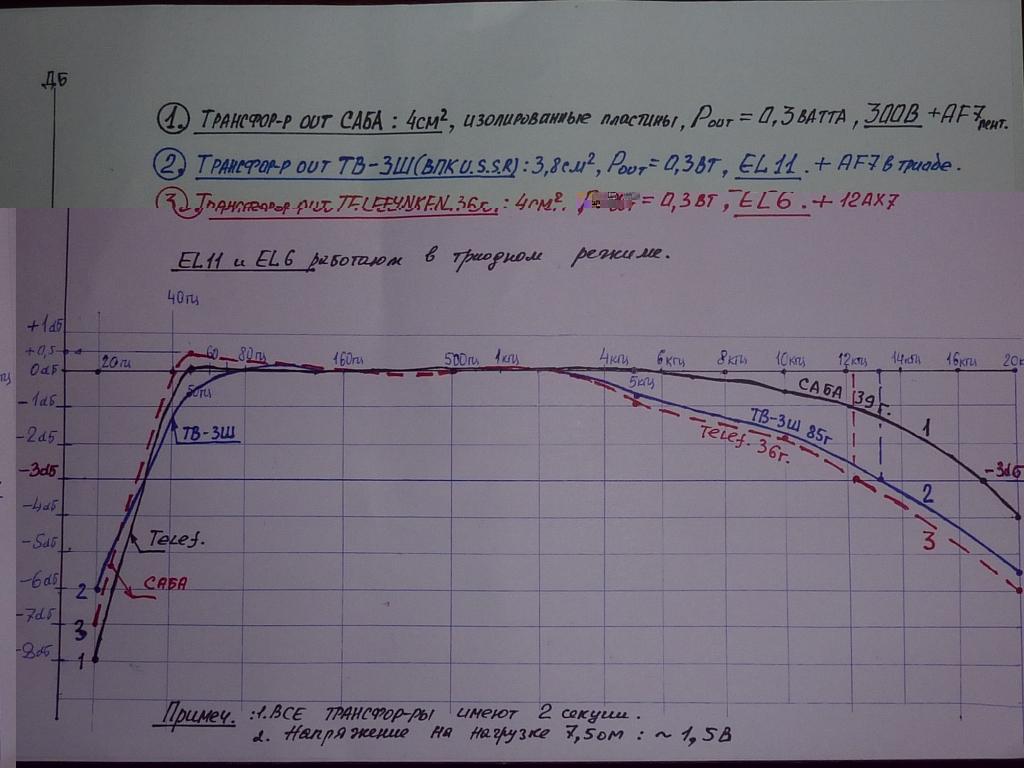 ДБ
1. ТРАНСФОР-Р OUT САБА : 4см², изолированные пластины, Pout = 0,3 ВАТТА, 300В + AF7 пент.
2. ТРАНСФОР-Р OUT ТВ-3Ш (ВПК U.S.S.R) : 3,8см², Pout = 0,3ВТ, EL11. + AF7 в триоде.
3. ТРАНСФОР-Р OUT TELEFUNKEN 36г. : 4см². = 0,3ВТ, EL6. + 12AX7
EL11 и EL6 работают в триодном режиме.
40гц
+1дБ
+0,5
20гц 60 80гц 160гц 500гц 1кгц 4кгц 6кгц 8кгц 10кгц 12кгц 14кгц 16кгц 20кг
0дБ
50гц
5кгц
САБА 39г.
-1дБ
ТВ-3Ш
ТВ-3Ш 85г
1
-2дБ
Telef. 36г.
-3дБ
-3дБ
-4дБ
2
-5дБ
Telef.
3
-6дБ
2
САБА
-7дБ
3
-8дБ
1
Примеч. : 1. ВСЕ ТРАНСФОР-РЫ имеют 2 секции.
2. Напряжение на нагрузке 7,5ом : ~ 1,5В